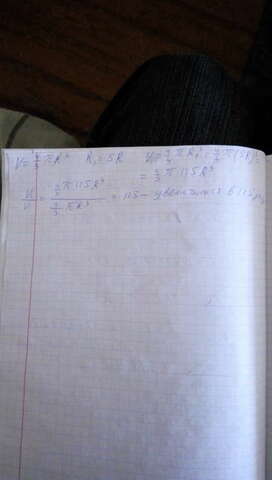 V = 4/3 πR³ R₁ = 5R V₁ = 4/3 πR₁³ = 4/3 π(5R)³ =
= 4/3 π 125R³
V₁/V = 4/3 π 125R³ / 4/3 πR³ = 125 - увеличится в 125 р.